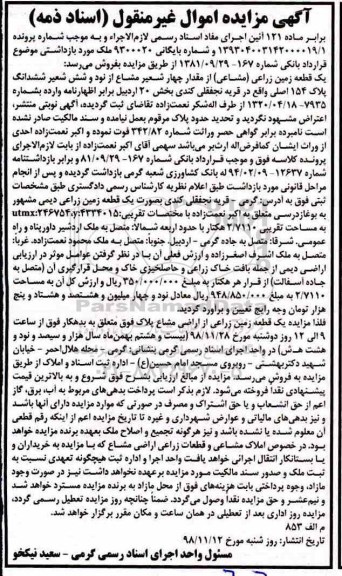 آگهی مزایده اموال غیرمنقول (اسناد ذمه)
برابر ماده ۱۲۱ آئین اجرای مفاد اسناد رسمی لازم‌الاجراء و به موجب شماره پرونده
۱۳۹۳۰۴۰۰۳۱۴۲۰۰۰۰۱۹/۱ و شماره بایگانی ۹۳۰۰۰۲۰ ملک مورد بازداشتی موضوع
قرارداد بانکی شماره ۱۶۷- ۱۳۸۱/۰۹/۲۹ از طریق مزایده بفروش می‌رسد:
یک قطعه زمین زراعی (مشاعی) از مقدار چهار شعیر مشاع از نود و شش شعیر ششدانگ
پلاک ۱۵۴ اصلی واقع در قریه نجفقلی کندی بخش ۲۰ اردبیل برابر اظهارنامه وارده بشماره
۷۹۳۵- ۱۳۲۰/۰۴/۱۸ از طرف اله‌شکر نعمت‌زاده تقاضای ثبت گردیده، آگهی نوبتی منتشر،
اعتراض مشهود نگردید و تحدید حدود پلاک مرقوم بعمل نیامده و سند مالکیت صادر نشده
است نامبرده برابر گواهی حصر وراثت شماره ۳۴۲/۸۲ فوت نموده و اکبر نعمت‌زاده احدی
از وراث ایشان کمافرض‌اله ارث‌بر می‌باشد سهمی آقای اکبر نعمت‌زاده از بابت لازم‌الاجرای
پرونده کلاسه فوق و موجب قرارداد بانکی شماره ۱۶۷- ۸۱/۰۹/۲۹ و برابر بازداشتنامه
شماره ۱۲۶۳۷- ۹۴/۰۲/۰۹ له بانک کشاورزی شعبه گرمی بازداشت گردیده و پس از انجام
مراحل قانونی مورد بازداشت طبق اعلام نظریه کارشناس رسمی دادگستری طبق مشخصات
ثبتی فوق به آدرس: گرمی، قریه نجفقلی کندی بصورت یک قطعه زمین زراعی دیمی مشهور
به یوغازدرسی متعلق به اکبر نعمت‌زاده با مختصات تقریبی: utmx:۲۴۶۷۵۴،y:۴۳۳۴۰۱۵
به مساحت تقریبی ۲/۷۱۱۰ هکتار با حدود اربعه شمالا: متصل به ملک اردشیر داورپناه و راه
عمومی، شرقا: متصل به جاده گرمی - اردبیل، جنوبا: متصل به ملک محمود نعمت‌زاده، غربا:
متصل به ملک اشرف اصغرزاده و ارزش فعلی آن با در نظر گرفتن عوامل موثر در ارزیابی
اراضی دیمی از جمله بافت خاک زراعی و حاصلخیزی خاک و محل قرارگیری آن (متصل به
جاده آسفالت) از قرار هر هکتار به مبلغ ۳۵۰/۰۰۰/۰۰۰ ریال و ارزش کل آن به مساحت
۲/۷۱۱۰ به مبلغ ۹۴۸/۸۵۰/۰۰۰ ریال معادل نود و چهار میلیون و هشتصد و هشتاد و پنج
هزار تومان وجه رایج تعیین و برآورد گردید
فلذا مزایده یک قطعه زمین زراعی از اراضی مشاع پلاک فوق متعلق به بدهکار فوق از ساعت
۹ الی ۱۲ روز دوشنبه مورخ ۹۸/۱۱/۲۸ (بیست و هشتم بهمن‌ماه سال هزار و سیصد و نود و
هشت ه‍.ش) در واحد اجرای اسناد رسمی گرمی بنشانی: گرمی - محله هلال‌احمر - خیابان
شهید دکتربهشتی - روبروی مسجد امام حسین(ع) - اداره ثبت اسناد و املاک از طریق
مزایده به فروش می‌رسد، مزایده از مبالغ ارزیابی بشرح فوق شروع و به بالاترین قیمت
پیشنهادی نقدا فروخته می‌شود. لازم بذکر است پرداخت بدهی‌های مربوط به آب، برق، گاز
اعم از حق انشعاب و یا حق اشتراک و مصرف در صورتی که موارد مزایده دارای آنها باشد
و نیز بدهی‌های مالیاتی و عوارض شهرداری و غیره تا تاریخ مزایده اعم از اینکه رقم قطعی
آن معلوم شده یا نشده باشد و نیز هرگونه تجمیع و اصلاح ملک بعهده برنده مزایده خواهد
بود. در خصوص املاک مشاعی و قطعات زراعی اراضی مشاع که با مزایده به خریداران و
یا بستانکار انتقال اجرائی خواهد یافت واحد اجرا و اداره ثبت هیچگونه تعهدی نسبت به
ثبت ملک و صدور سند مالکیت مورد مزایده برعهده نخواهد داشت نیز در صورت وجود
مازاد، وجوه پرداختی بابت هزینه‌های فوق از محل مازاد به برنده مزایده مسترد خواهد شد
و نیم‌عشر و حق مزایده نقدا وصول می‌گردد. ضمنا چنانچه روز مزایده تعطیل رسمی گردد،
مزایده روز اداری بعد از تعطیلی در همان ساعت و مکان مقرر برگزار خواهد شد.
م الف ۸۵۳
تاریخ انتشار: روز شنبه مورخ ۹۸/۱۱/۱۲
مسئول واحد اجرای اسناد رسمی گرمی - سعید نیکخو